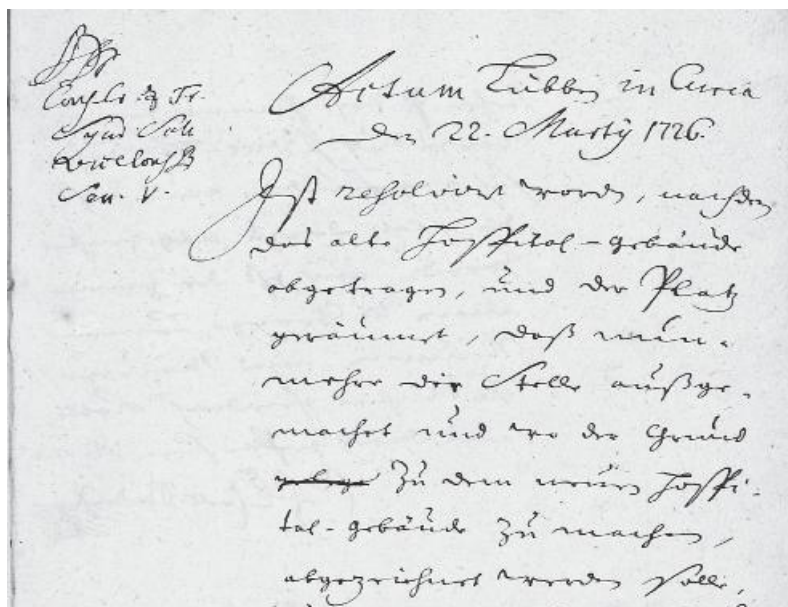 Synd
Sen. V.
Actum Lübben in Curia
den 22. Martij 1726.
Ist resolviret worden, nachdem
das alte Hospital-gebäude
abgetragen, und der Platz
geräumet, daß nun-
mehro die Stelle außge-
machet und wo der Grund
zu dem neuen Hospi-
tal-gebäude zu machen,
abgezeichnet werden solle,